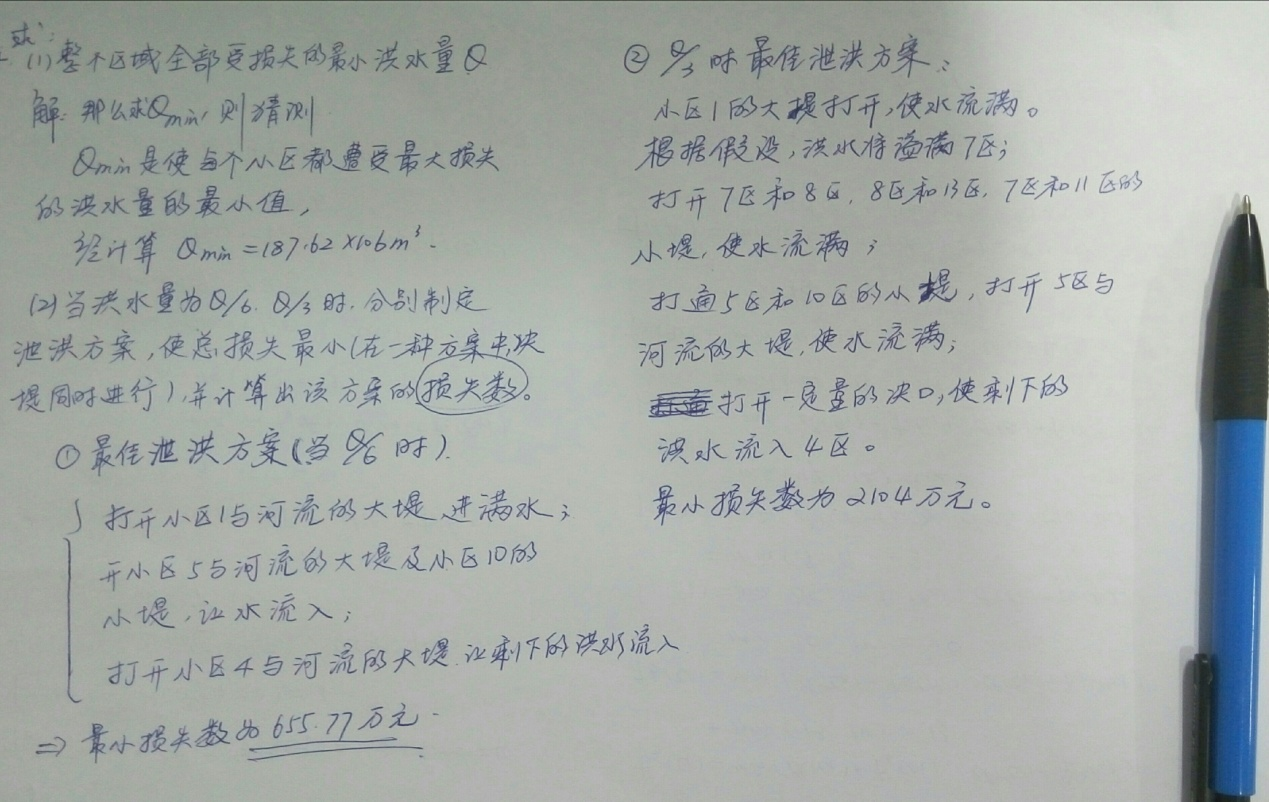 求:
(1)整个区域全部受损失的最小洪水量Q
解: 那么求Qmin, 则猜测
Qmin是使每个小区都遭受最大损失
的洪水量的最小值,
经计算 Qmin=187.62×106m³.
(2)当洪水量为Q/6. Q/3时. 分别制定
泄洪方案,使总损失最小(在一种方案中,决
堤同时进行),并计算出该方案的损失数。
①最佳泄洪方案(当Q/6时).
打开小区1与河流的大堤 进满水;
开小区5与河流的大堤及小区10的
小堤,让水流入;
打开小区4与河流的大堤.让剩下的洪水流入
⇒ 最小损失数为655.77万元.
② Q/3时最佳泄洪方案:
小区1的大堤打开,使水流满。
根据假设,洪水将溢满7区;
打开7区和8区,8区和13区,7区和11区的
小堤,使水流满;
打通5区和10区的小堤,打开5区与
河流的大堤,使水流满;
打开一定量的决口,使剩下的
洪水流入4区。
最小损失数为2104万元。